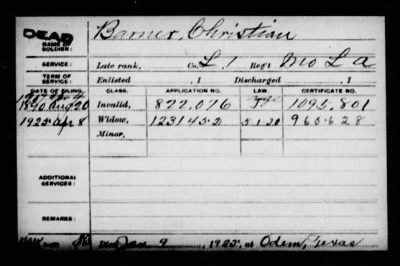 DEAD
NAME OF SOLDIER: Barner, Christian
SERVICE: Late rank, Co. L, 1 Reg't Mo L A
TERM OF SERVICE: Enlisted , 1 Discharged , 1
DATE OF FILING. CLASS. APPLICATION NO. LAW. CERTIFICATE NO.
1890 Aug 20 Invalid, 822,076 1095,801
1925 Apr 8 Widow, 1231452 5-1-20 965628
Minor,
ADDITIONAL SERVICES:
REMARKS:
Died Jan 9, 1925, at Odem, Texas